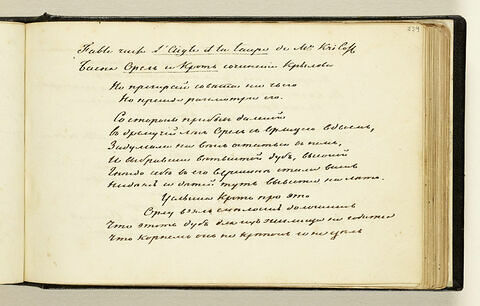 239
Fable russe l'Aigle et la taupe de Mr. Kriloff
Басня Орелъ и Кротъ сочинении Крылова
Не презирай совѣта ни чьего
Но прежде разсмотри его.
Со стороны прибывъ далекой
въ дремучій лѣсъ Орелъ съ Орлицею вдвоемъ,
Задумали на вѣкъ остаться въ немъ,
И выбравши вѣтвистый дубъ, высокій
Гнездо себѣ въ его вершинѣ стали вить
Надѣясь и дѣтей тутъ вывести на лѣто.
Услыша Кротъ про это
Орлу взялъ смѣлость доложить
Что этотъ дубъ для ихъ жилища не годится
Что корнемъ онъ